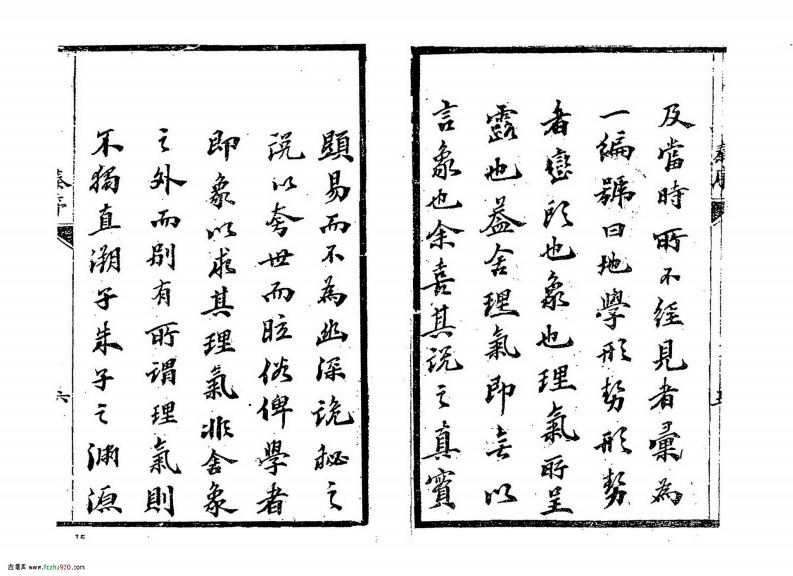 及當時所不經見者彙為
一編號曰地學形勢形勢
者巒頭也象也理氣所呈
露也蓋舍理氣即無以
言象也余喜其說之真實
秦序
五
顯易而不為幽深詭秘之
說以夸世而眩俗俾學者
即象以求其理氣非舍象
之外而別有所謂理氣則
不獨直溯子朱子之淵源
秦序
六
15
古易库 www.fczhu920.com